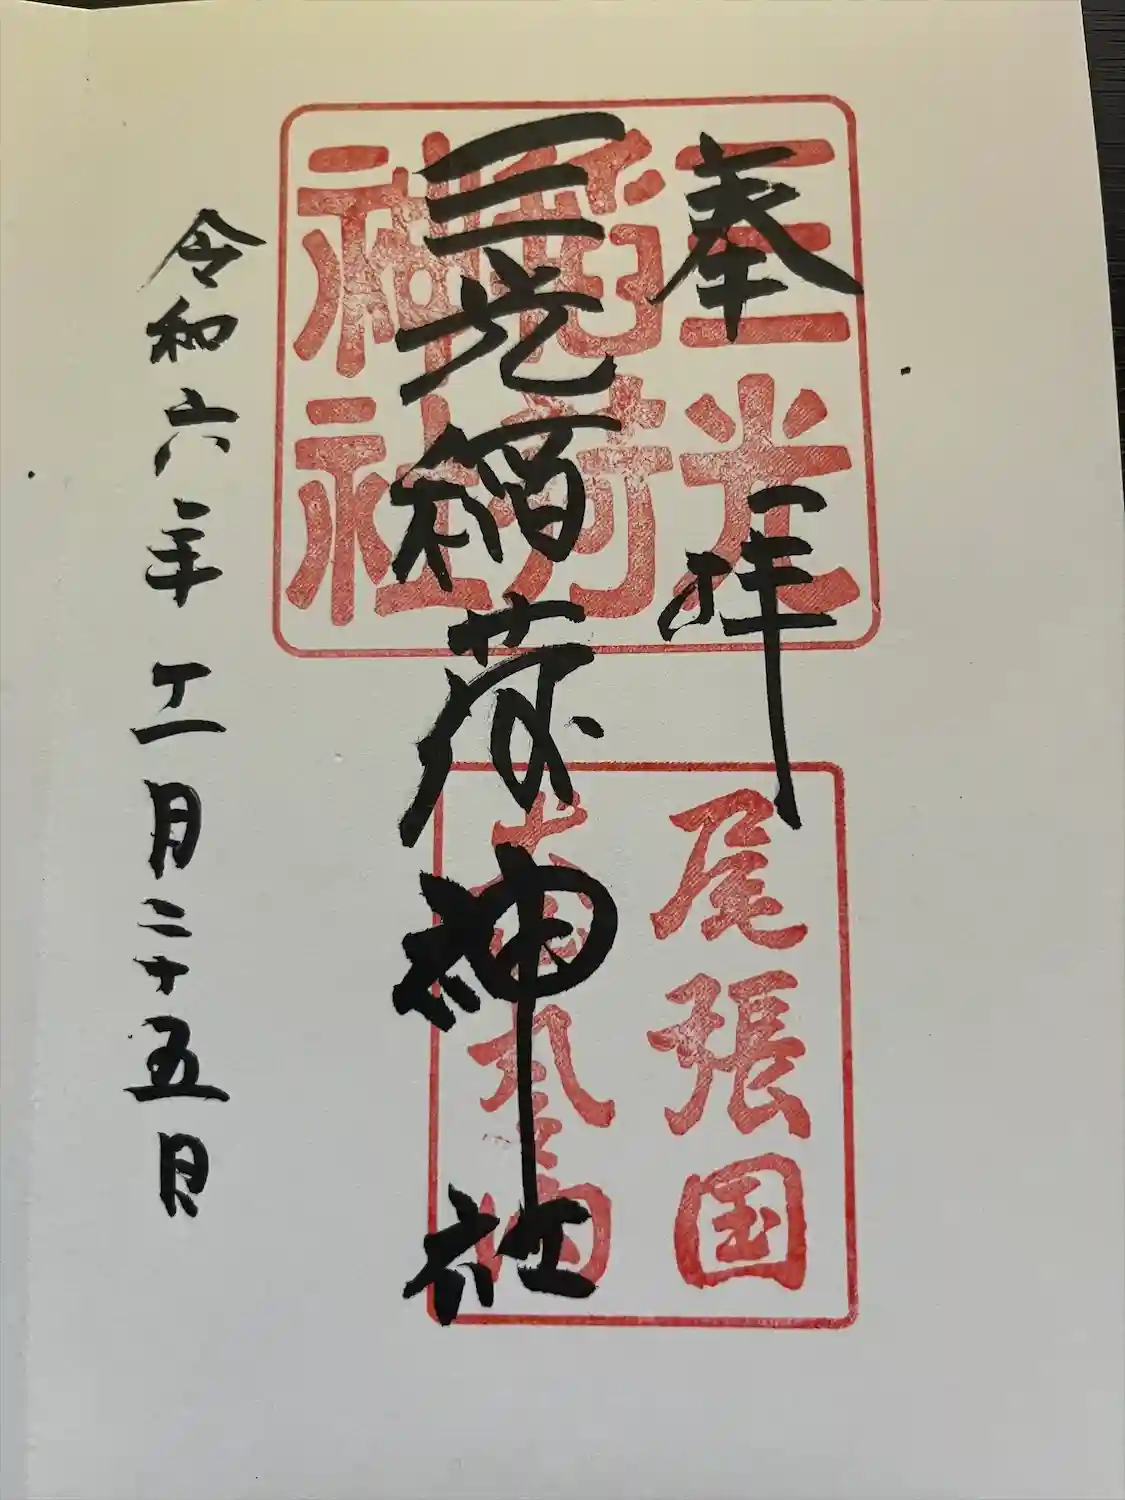 奉拝
三光稲荷神社
令和六年十一月二十五日
三光
稲荷
神社
尾張国
犬山丸之内